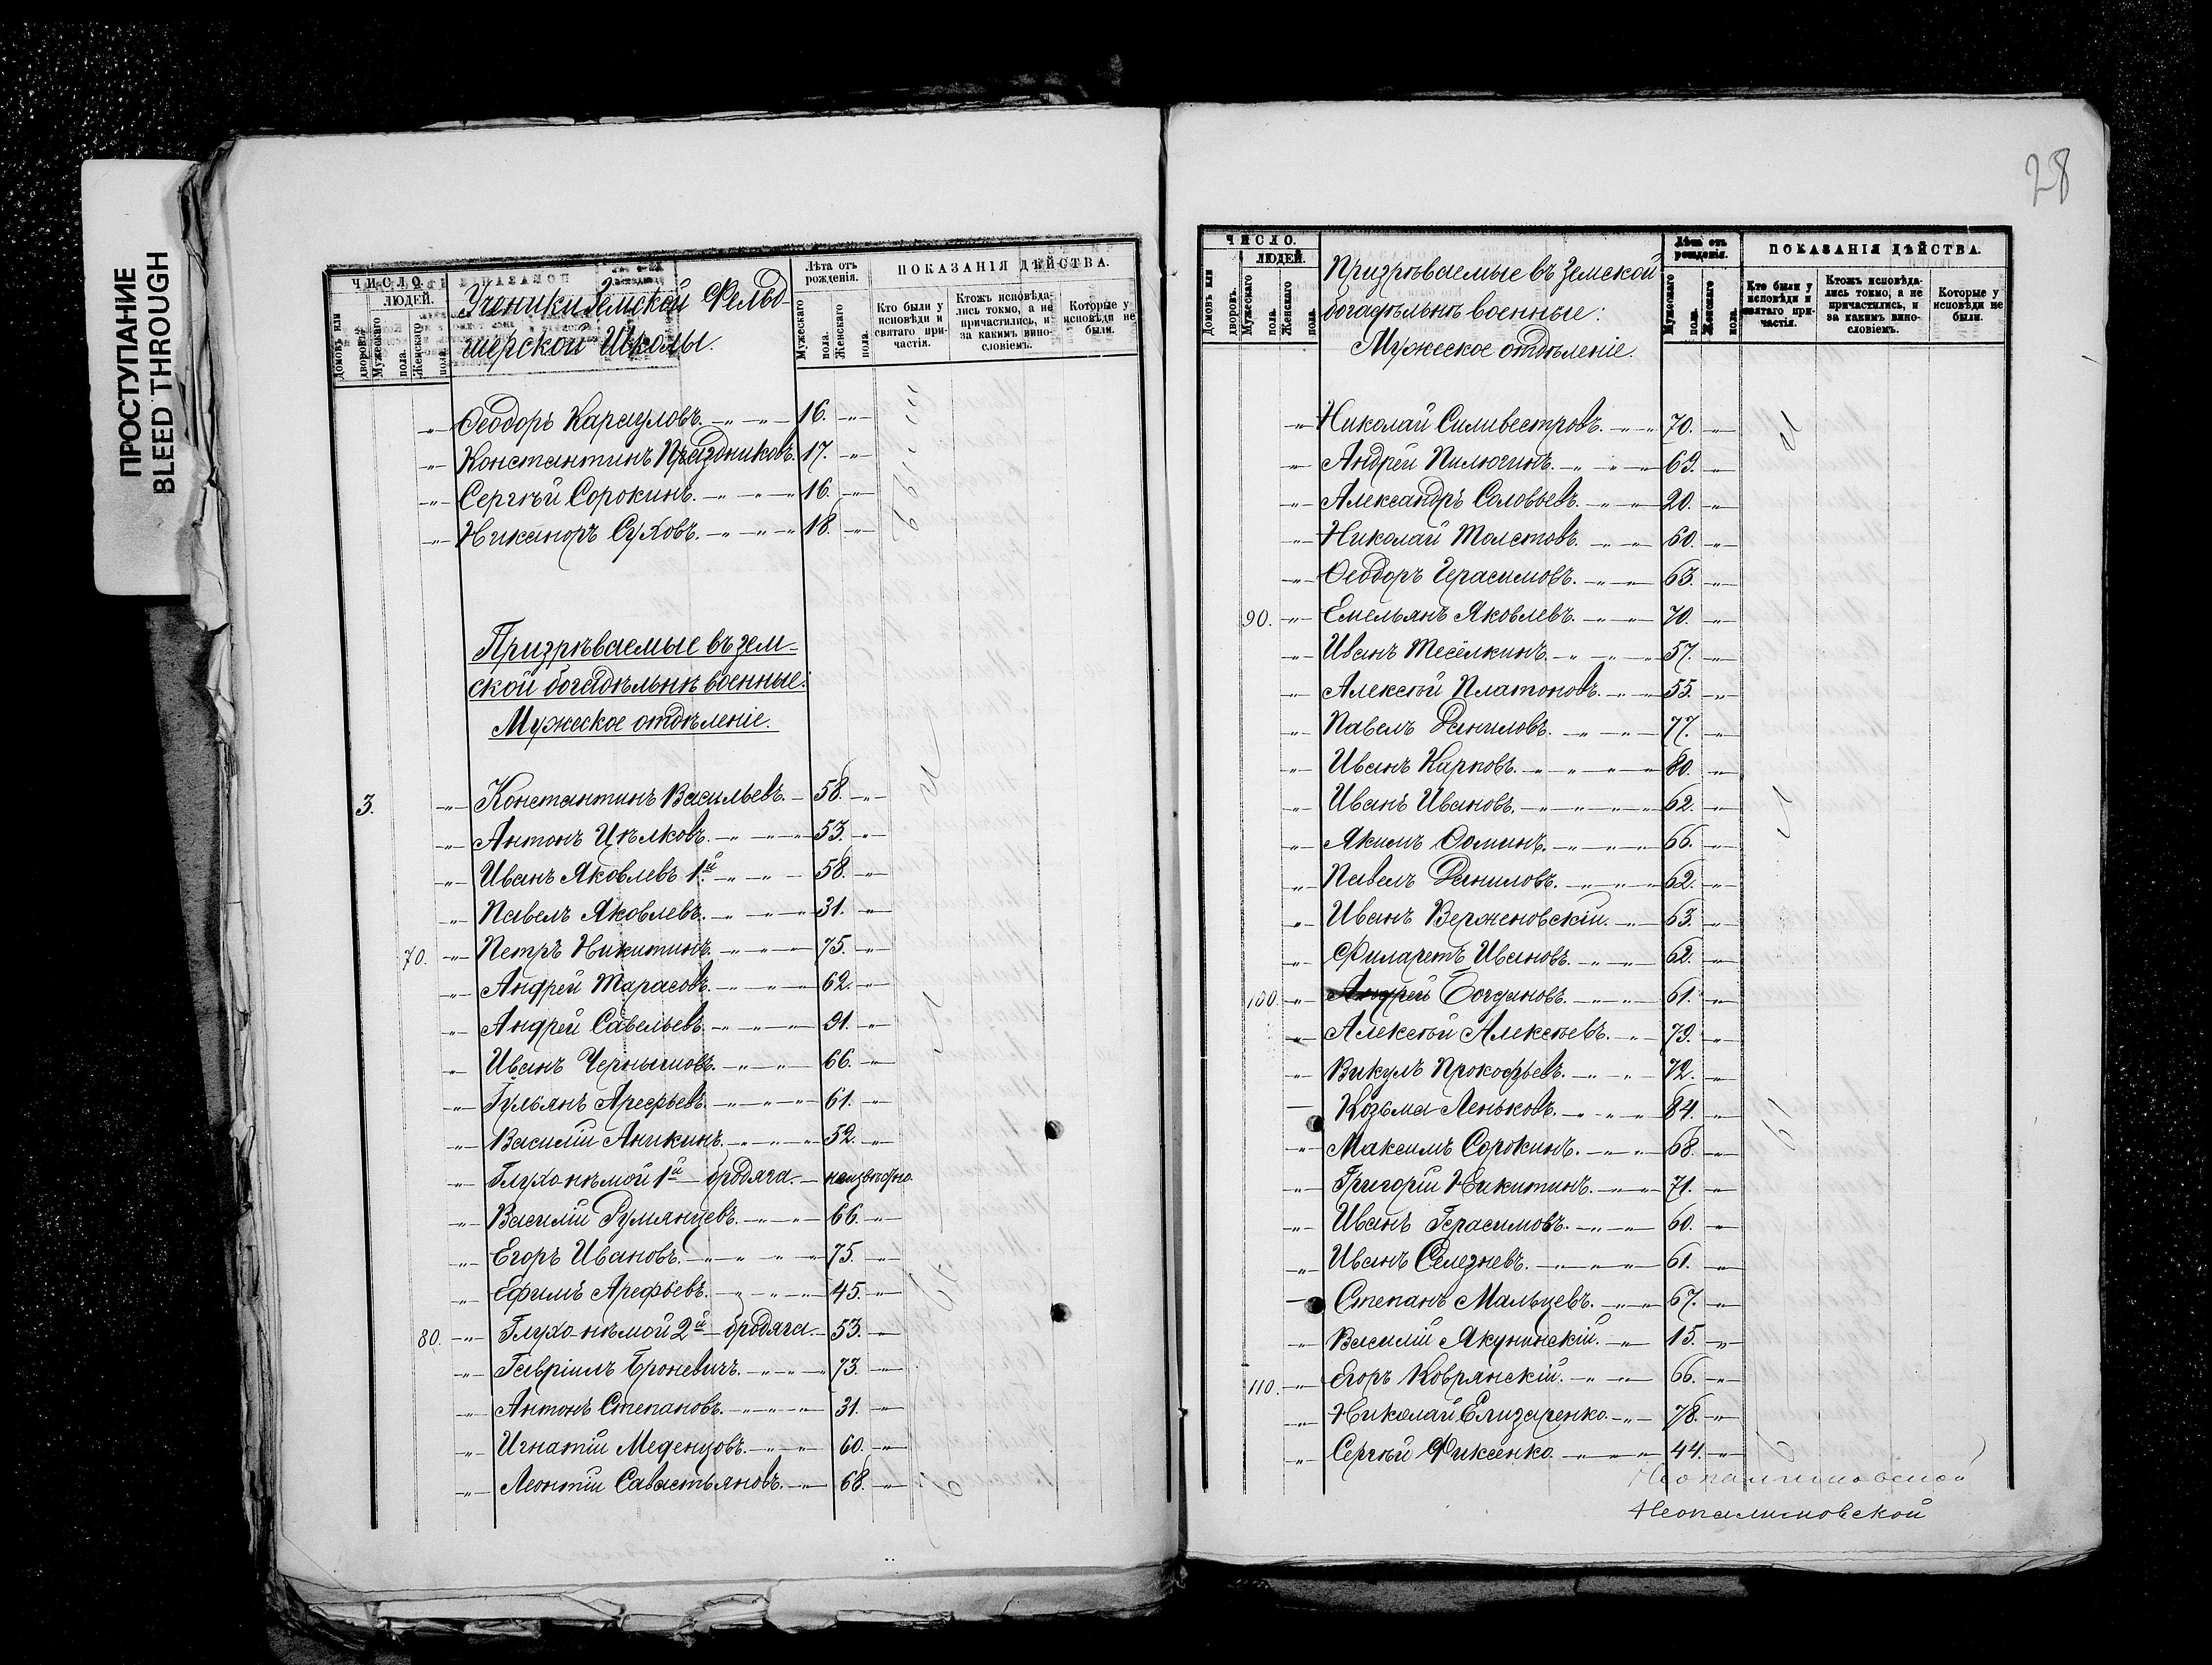 ПРОСТУПАНИЕ
BLEED THROUGH
ЧИСЛО.
ЛЮДЕЙ.
Домовъ или дворовъ.
Мужескаго пола.
Женскаго пола.
Ученики Земской Фельд-
шерской Школы.
Лѣта отъ рожденія.
Мужескаго пола.
Женскаго пола.
ПОКАЗАНІЯ ДѢЙСТВА.
Кто были у исповѣди и святаго при-частія.
Ктожъ исповѣда-лись токмо, а не причастились, и за какимъ вино-словіемъ.
Которые у исповѣди не были.
-"- Ѳеодоръ Карауловъ. -"- -"- 16. -"-
-"- Константинъ Праздниковъ. 17. -"-
-"- Сергѣй Сорокинъ. -"- -"- 16. -"-
-"- Никаноръ Суховъ. -"- -"- 18. -"-
Призрѣваемые въ зем-
ской богадѣльнѣ военные:
Мужеское отдѣленіе.
3. -"- Константинъ Васильевъ. - 58. -"-
-"- Антонъ -"- -"- 53. -"-
-"- Иванъ Яковлевъ 1й -"- -"- 58. -"-
-"- Павелъ Яковлевъ. -"- -"- 31. -"-
70. -"- Петръ Никитинъ. -"- -"- 75. -"-
-"- Андрей Тарасовъ. -"- -"- 62. -"-
-"- Андрей Савельевъ. -"- -"- 91. -"-
-"- Иванъ Чернышовъ. -"- -"- 66. -"-
-"- Гульянъ Арефьевъ. -"- -"- 61. -"-
-"- Василій Аникинъ. -"- -"- 52. -"-
-"- Глухо-нѣмой 1й - бродяга. - неизвѣстно.
-"- Василій Румянцевъ. -"- -"- 66. -"-
-"- Егоръ Ивановъ. -"- -"- -"- 75. -"-
-"- Ефимъ Арефьевъ. -"- -"- 45. -"-
80. -"- Глухо-нѣмой 2й - бродяга. - 53. -"-
-"- Гавріилъ Броневичъ. -"- -"- 73. -"-
-"- Антонъ Степановъ. -"- -"- 31. -"-
-"- Игнатій Меденцовъ. -"- -"- 60. -"-
-"- Леонтій Савастьяновъ. -"- 68. -"-
28
ЧИСЛО.
ЛЮДЕЙ.
Домовъ или дворовъ.
Мужескаго пола.
Женскаго пола.
Призрѣваемые въ Земской
богадѣльнѣ военные:
Мужеское отдѣленіе.
Лѣта отъ рожденія.
Мужескаго пола.
Женскаго пола.
ПОКАЗАНІЯ ДѢЙСТВА.
Кто были у исповѣди и святаго при-частія.
Ктожъ исповѣда-лись токмо, а не причастились, и за какимъ вино-словіемъ.
Которые у исповѣди не были.
-"- Николай Силивестровъ. -"- -"- 70. -"-
-"- Андрей Пилюгинъ. -"- -"- 69. -"-
-"- Александръ Соловьевъ. -"- -"- 20. -"-
-"- Николай Толстовъ. -"- -"- 60. -"-
-"- Ѳеодоръ Герасимовъ. -"- -"- 63. -"-
90. -"- Емельянъ Яковлевъ. -"- -"- 70. -"-
-"- Иванъ Тесёлкинъ. -"- -"- 57. -"-
-"- Алексѣй Платоновъ. -"- -"- 55. -"-
-"- Павелъ Даниловъ. -"- -"- 77. -"-
-"- Иванъ Карповъ. -"- -"- -"- 80. -"-
-"- Иванъ Ивановъ. -"- -"- -"- 62. -"-
-"- Якимъ Ѳоминъ. -"- -"- -"- 66. -"-
-"- Павелъ Даниловъ. -"- -"- 62. -"-
-"- Иванъ Верженовскій. -"- 63. -"-
-"- Филаретъ Ивановъ. -"- -"- 62. -"-
100. -"- Андрей Богдановъ. -"- -"- 61. -"-
-"- Алексѣй Алексѣевъ. -"- 79. -"-
-"- Викулъ Прокофьевъ. -"- -"- 72. -"-
- Козьма Леньковъ. -"- -"- 84. -"-
-"- Максимъ Сорокинъ. -"- -"- 68. -"-
-"- Григорій Никитинъ. -"- -"- 71. -"-
-"- Иванъ Герасимовъ. -"- -"- 60. -"-
-"- Иванъ Селезневъ. -"- -"- 61. -"-
- Степанъ Мальцевъ. -"- -"- 67. -"-
-"- Василій Якунинскій. -"- 15. -"-
110. -"- Егоръ Ковржнскій. -"- -"- 66. -"-
-"- Николай Елизаренко. -"- 78. -"-
-"- Сергѣй Фиксенко. -"- -"- 44. -"-
Неопалимовской
Неопалимовской